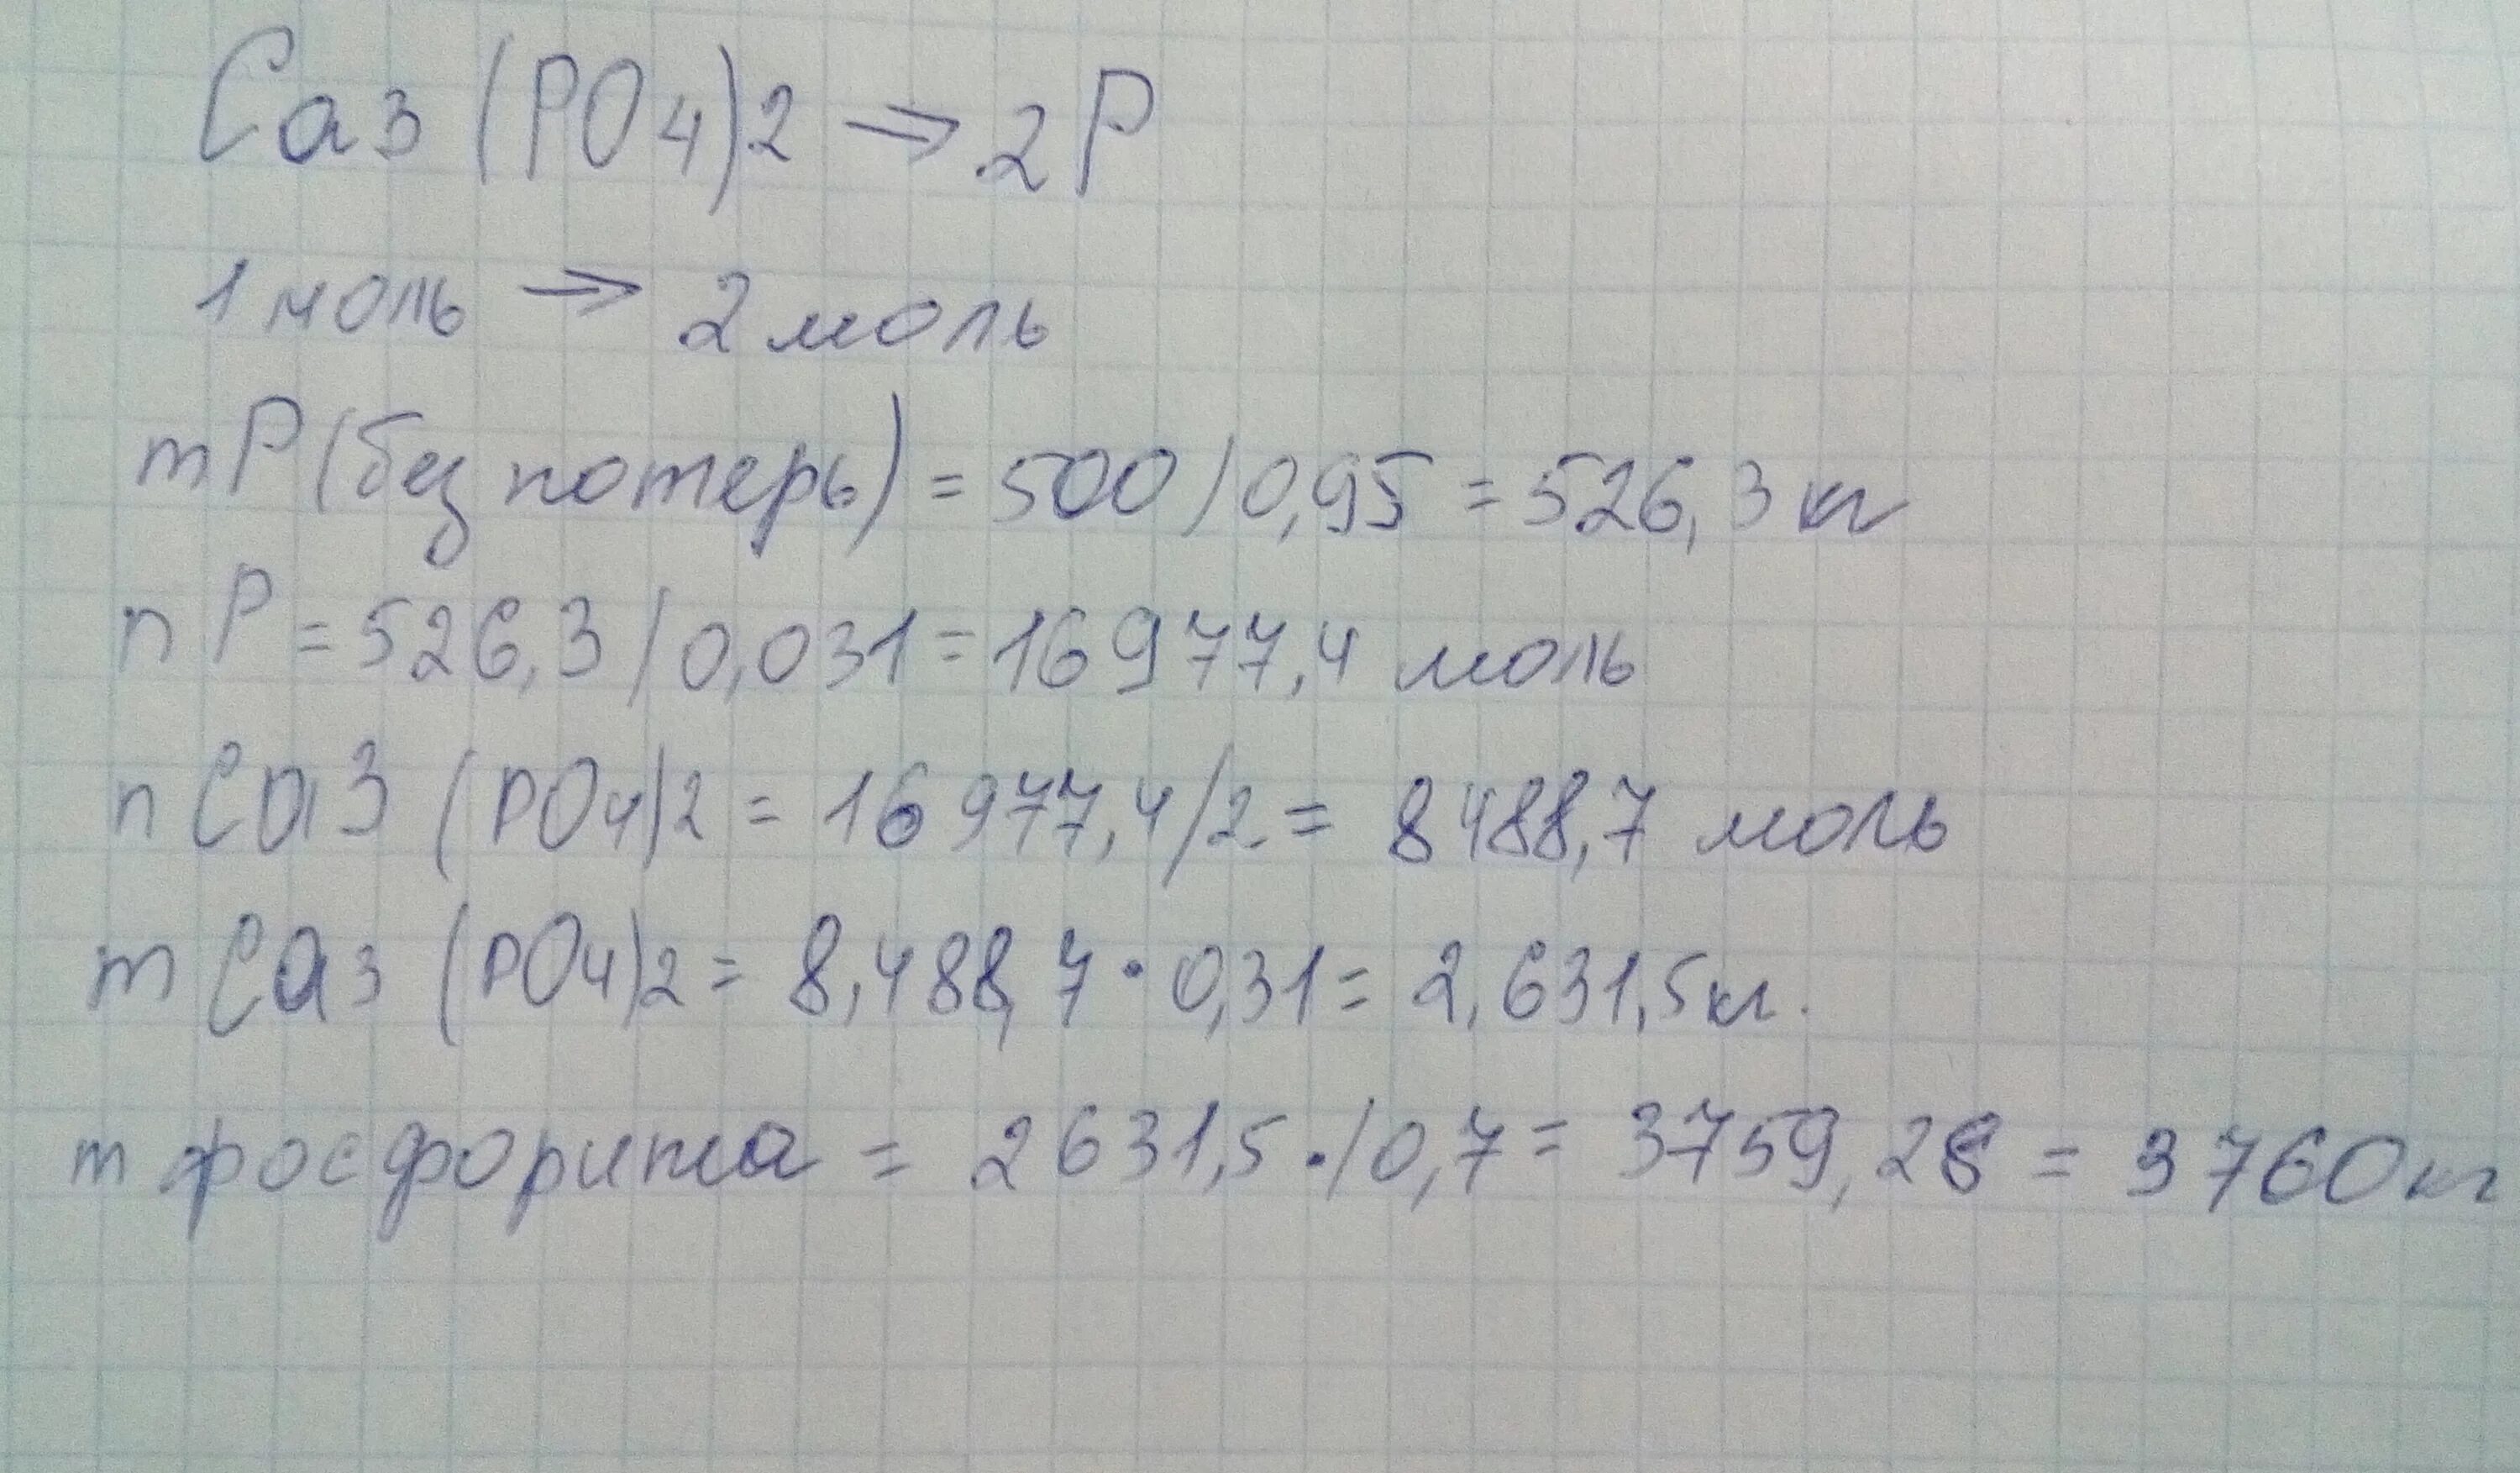 Ca3 (PO4)2 → 2P
1 моль → 2 моль
mP (без потерь) = 500 / 0,95 = 526,3 кг
n P = 526,3 / 0,031 = 16977,4 моль
n Ca3 (PO4)2 = 16977,4/2 = 8488,7 моль
m Ca3 (PO4)2 = 8,488,7 · 0,31 = 2,631,5 кг.
m фосфорита = 2631,5 · / 0,7 = 3759,28 = 3760 кг